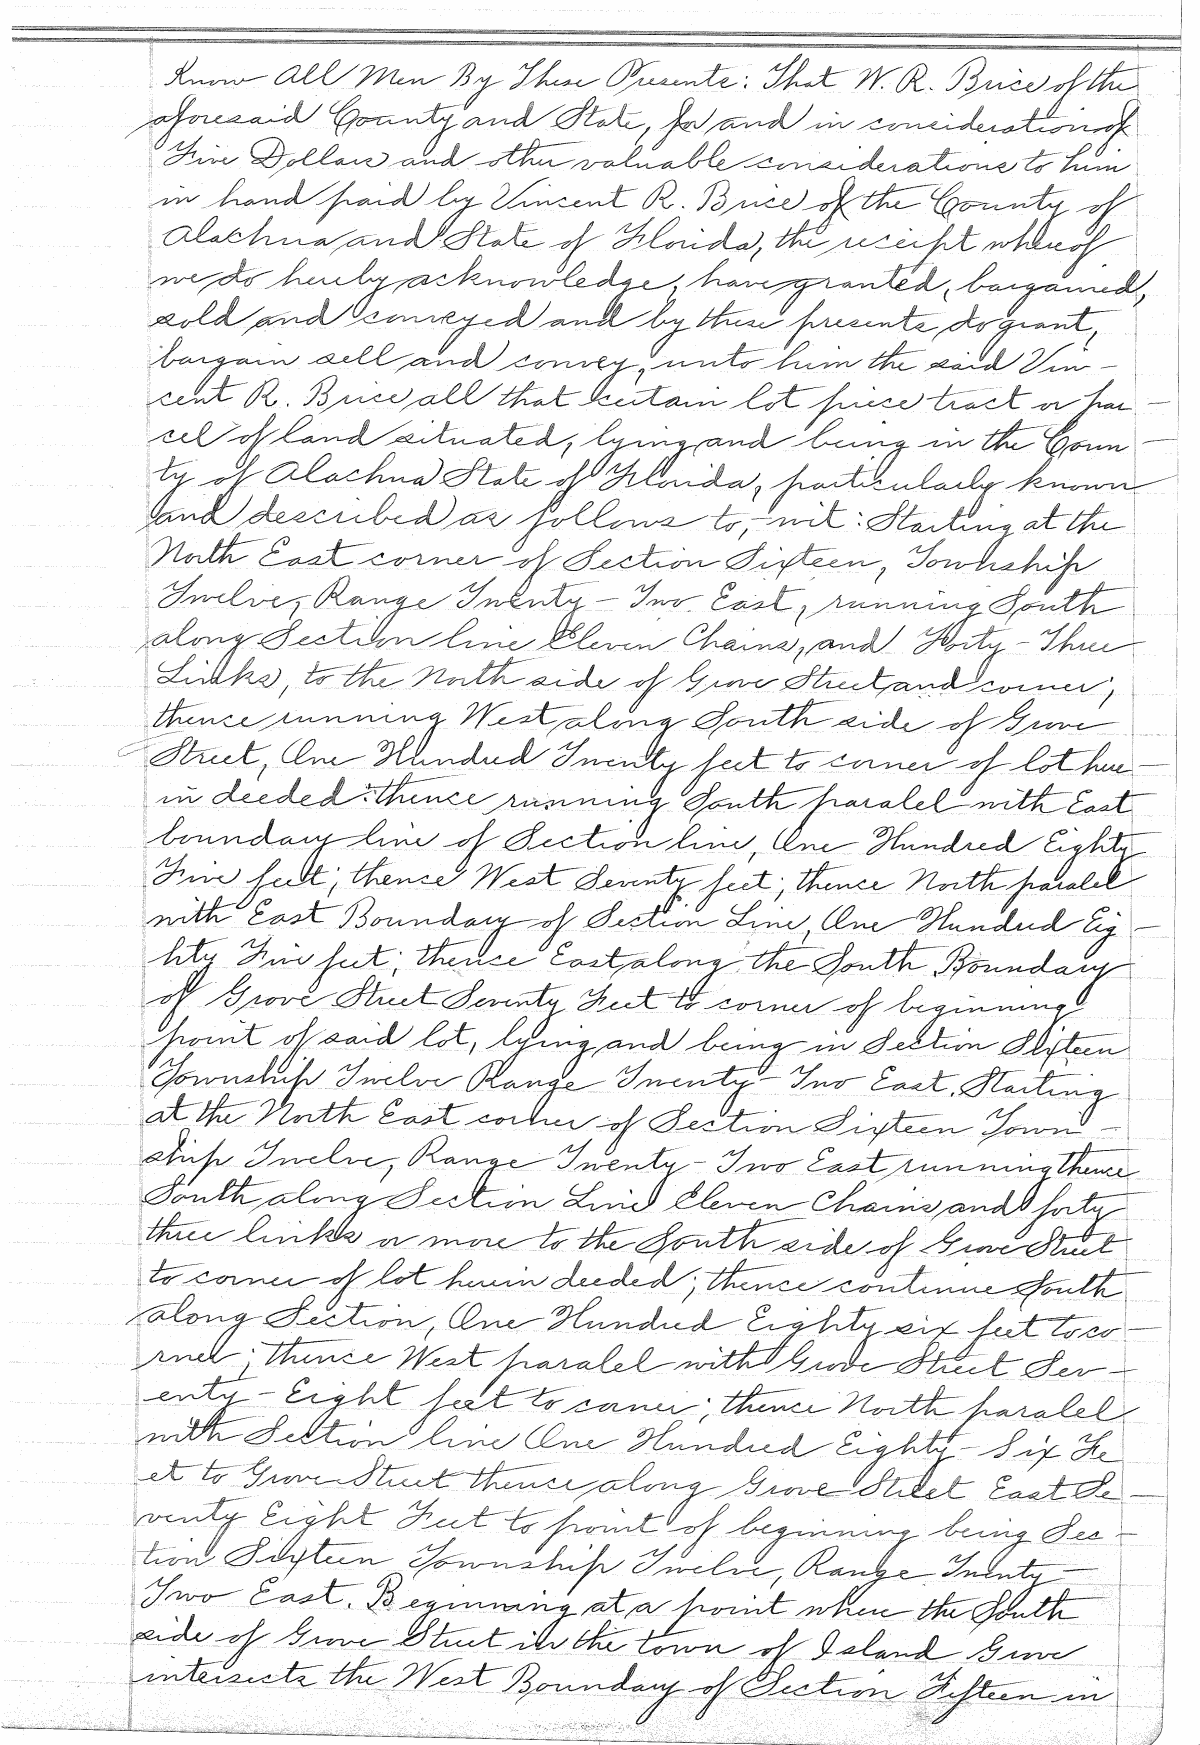 Know All Men By These Presents: That W. R. Brice of the
aforesaid County and State, for and in consideration of
Five Dollars and other valuable considerations to him
in hand paid by Vincent R. Brice of the County of
Alachua and State of Florida, the receipt whereof
we do hereby acknowledge, have granted, bargained,
sold and conveyed and by these presents do grant,
bargain sell and convey, unto him the said Vin-
cent R. Brice all that certain lot piece tract or par-
cel of land situated, lying and being in the Coun-
ty of Alachua State of Florida, particularly known
and described as follows to,-wit: Starting at the
North East corner of Section Sixteen, Township
Twelve, Range Twenty-Two East, running South
along Section line Eleven Chains, and Forty-Three
Links, to the North side of Grove Street and corner;
thence running West along South side of Grove
Street, One Hundred Twenty feet to corner of lot here-
in deeded: thence running South paralel with East
boundary line of Section line, One Hundred Eighty
Five feet; thence West Seventy feet; thence North paralel
with East Boundary of Section Line, One Hundred Eig-
hty Five feet; thence East along the South Boundary
of Grove Street Seventy Feet to corner of beginning
point of said lot, lying and being in Section Sixteen
Township Twelve Range Twenty-Two East. Starting
at the North East corner of Section Sixteen Town-
ship Twelve, Range Twenty-Two East running thence
South along Section Line Eleven Chains and forty
three links or more to the South side of Grove Street
to corner of lot herein deeded; thence continue South
along Section, One Hundred Eighty six feet to co-
rner; thence West paralel with Grove Street Sev-
enty-Eight feet to corner; thence North paralel
with Section line One Hundred Eighty-Six Fe
et to Grove Street thence along Grove Street East Se-
venty Eight Feet to point of beginning being Sec-
tion Sixteen Township Twelve, Range Twenty-
Two East. Beginning at a point where the South
side of Grove Street in the town of Island Grove
intersects the West Boundary of Section Fifteen in